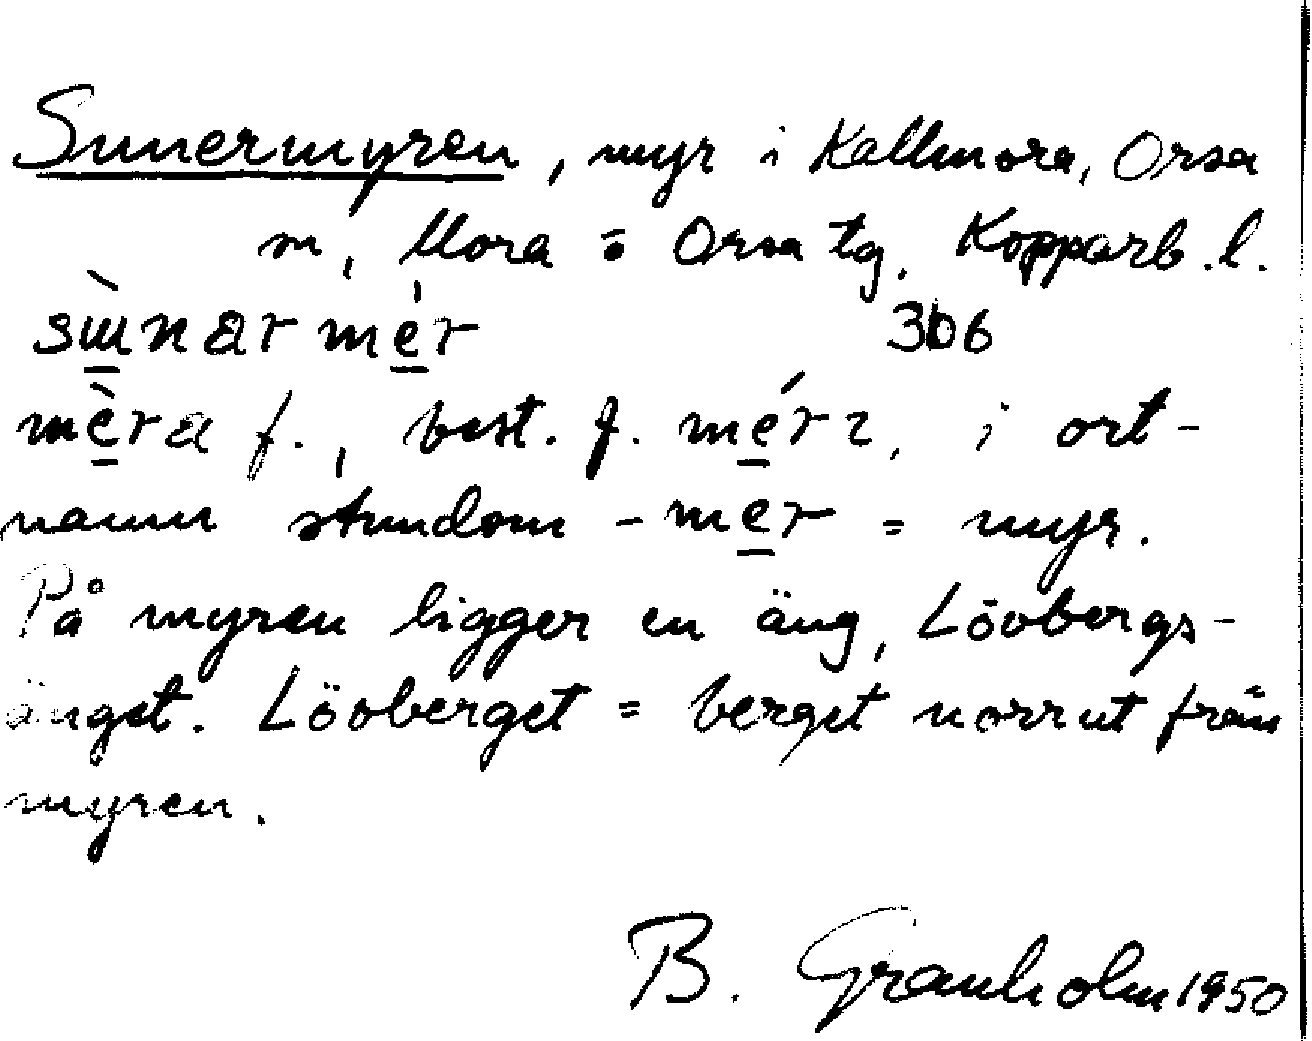 Sunermyren, myr i Kallmora, Orsa
sn, Mora o Orsa tg, Kopparb. l.
306
mèra f., best. f. mérɪ, i ort-
namn stundom -mer = myr.
På myren ligger en äng, Lövbergs-
änget. Lövberget = berget norrut från
myren.
B. Granholm 1950